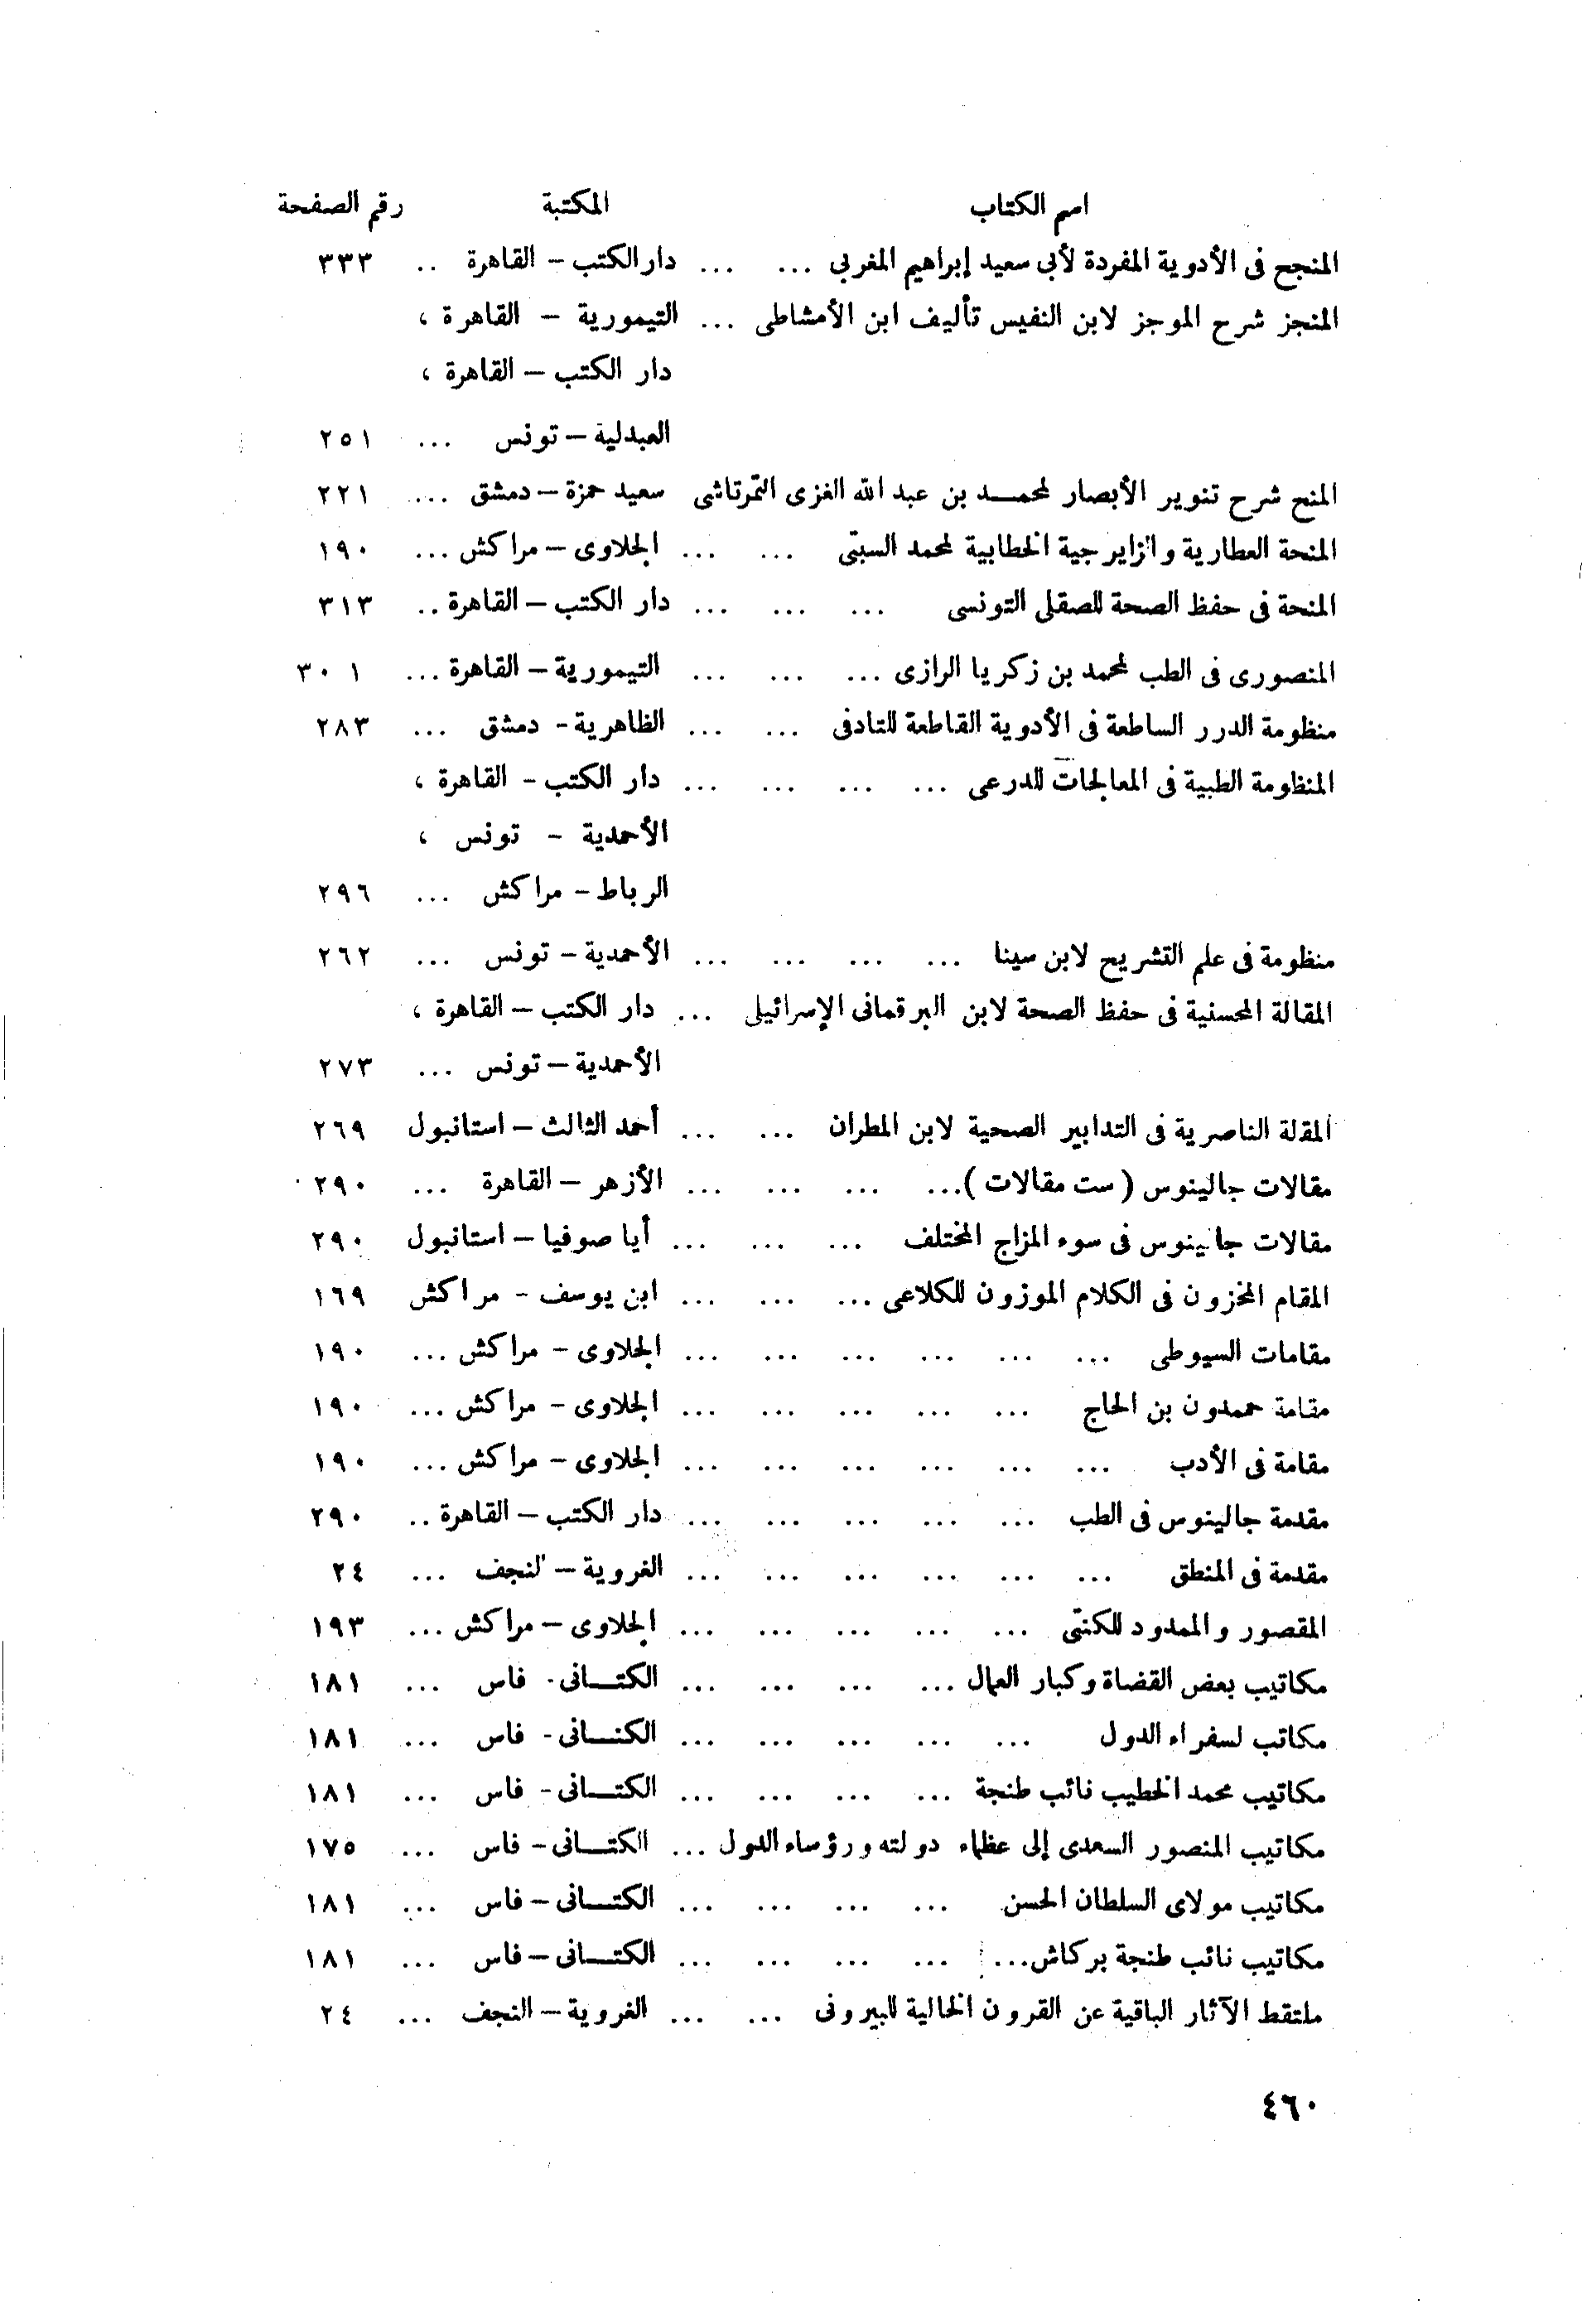 اسم الكتاب المكتبة رقم الصفحة
المنجح فى الأدوية المفردة لأبى سعيد إبراهيم المغربى ... ... دار الكتب – القاهرة .. ٣٣٣
المنجز شرح الموجز لابن النفيس تأليف ابن الأمشاطى ... التيمورية – القاهرة ،
دار الكتب – القاهرة ،
العبدلية – تونس ... ٢٥١
المنح شرح تنوير الأبصار لمحمد بن عبد الله الغزى التمرتاشى سعيد حمزة – دمشق ... ٢٢١
المنحة العطارية والزايرجية الخطابية لمحمد السبتى ... ... الجلاوى – مراكش ... ١٩٠
المنحة فى حفظ الصحة للصقلى التونسى ... ... ... دار الكتب – القاهرة .. ٣١٣
المنصورى فى الطب لمحمد بن زكريا الرازى ... ... ... التيمورية – القاهرة ... ٣٠١
منظومة الدرر الساطعة فى الأدوية القاطعة للتادفى ... ... الظاهرية - دمشق ... ٢٨٣
المنظومة الطبية فى المعالجات للدرعى ... ... ... ... دار الكتب - القاهرة ،
الأحمدية - تونس ،
الرباط - مراكش ... ٢٩٦
منظومة فى علم التشريح لابن سينا ... ... ... ... الأحمدية - تونس ... ٢٦٢
المقالة المحسنية فى حفظ الصحة لابن البرقمانى الإسرائيلى ... دار الكتب – القاهرة ،
الأحمدية – تونس ... ٢٧٣
المقلة الناصرية فى التدابير الصحية لابن المطران ... ... أحمد الثالث – استانبول ٢٦٩
مقالات جالينوس ( ست مقالات ) ... ... ... ... الأزهر – القاهرة ... ٢٩٠
مقالات جالينوس فى سوء المزاج المختلف ... ... ... أيا صوفيا – استانبول ٢٩٠
المقام المخزون فى الكلام الموزون للكلاعى ... ... ... ابن يوسف - مراكش ١٦٩
مقامات السيوطى ... ... ... ... ... ... الجلاوى - مراكش ... ١٩٠
مقامة حمدون بن الحاج ... ... ... ... ... الجلاوى - مراكش ... ١٩٠
مقامة فى الأدب ... ... ... ... ... ... الجلاوى - مراكش ... ١٩٠
مقدمة جالينوس فى الطب ... ... ... ... ... دار الكتب – القاهرة .. ٢٩٠
مقدمة فى المنطق ... ... ... ... ... ... الغروية – النجف ... ٢٤
المقصور والممدود للكنتى ... ... ... ... ... الجلاوى – مراكش ... ١٩٣
مكاتيب بعض القضاة وكبار العمال ... ... ... ... الكتانى - فاس ... ١٨١
مكاتب لسفراء الدول ... ... ... ... ... الكتانى - فاس ... ١٨١
مكاتيب محمد الخطيب نائب طنجة ... ... ... ... الكتانى - فاس ... ١٨١
مكاتيب المنصور السعدى إلى عظماء دولته ورؤساء الدول ... الكتانى - فاس ... ١٧٥
مكاتيب مولاى السلطان الحسن ... ... ... ... الكتانى – فاس ... ١٨١
مكاتيب نائب طنجة بركاش ... ... ... ... ... الكتانى – فاس ... ١٨١
ملتقط الآثار الباقية عن القرون الخالية للبيرونى ... ... الغروية – النجف ... ٢٤
٤٦٠